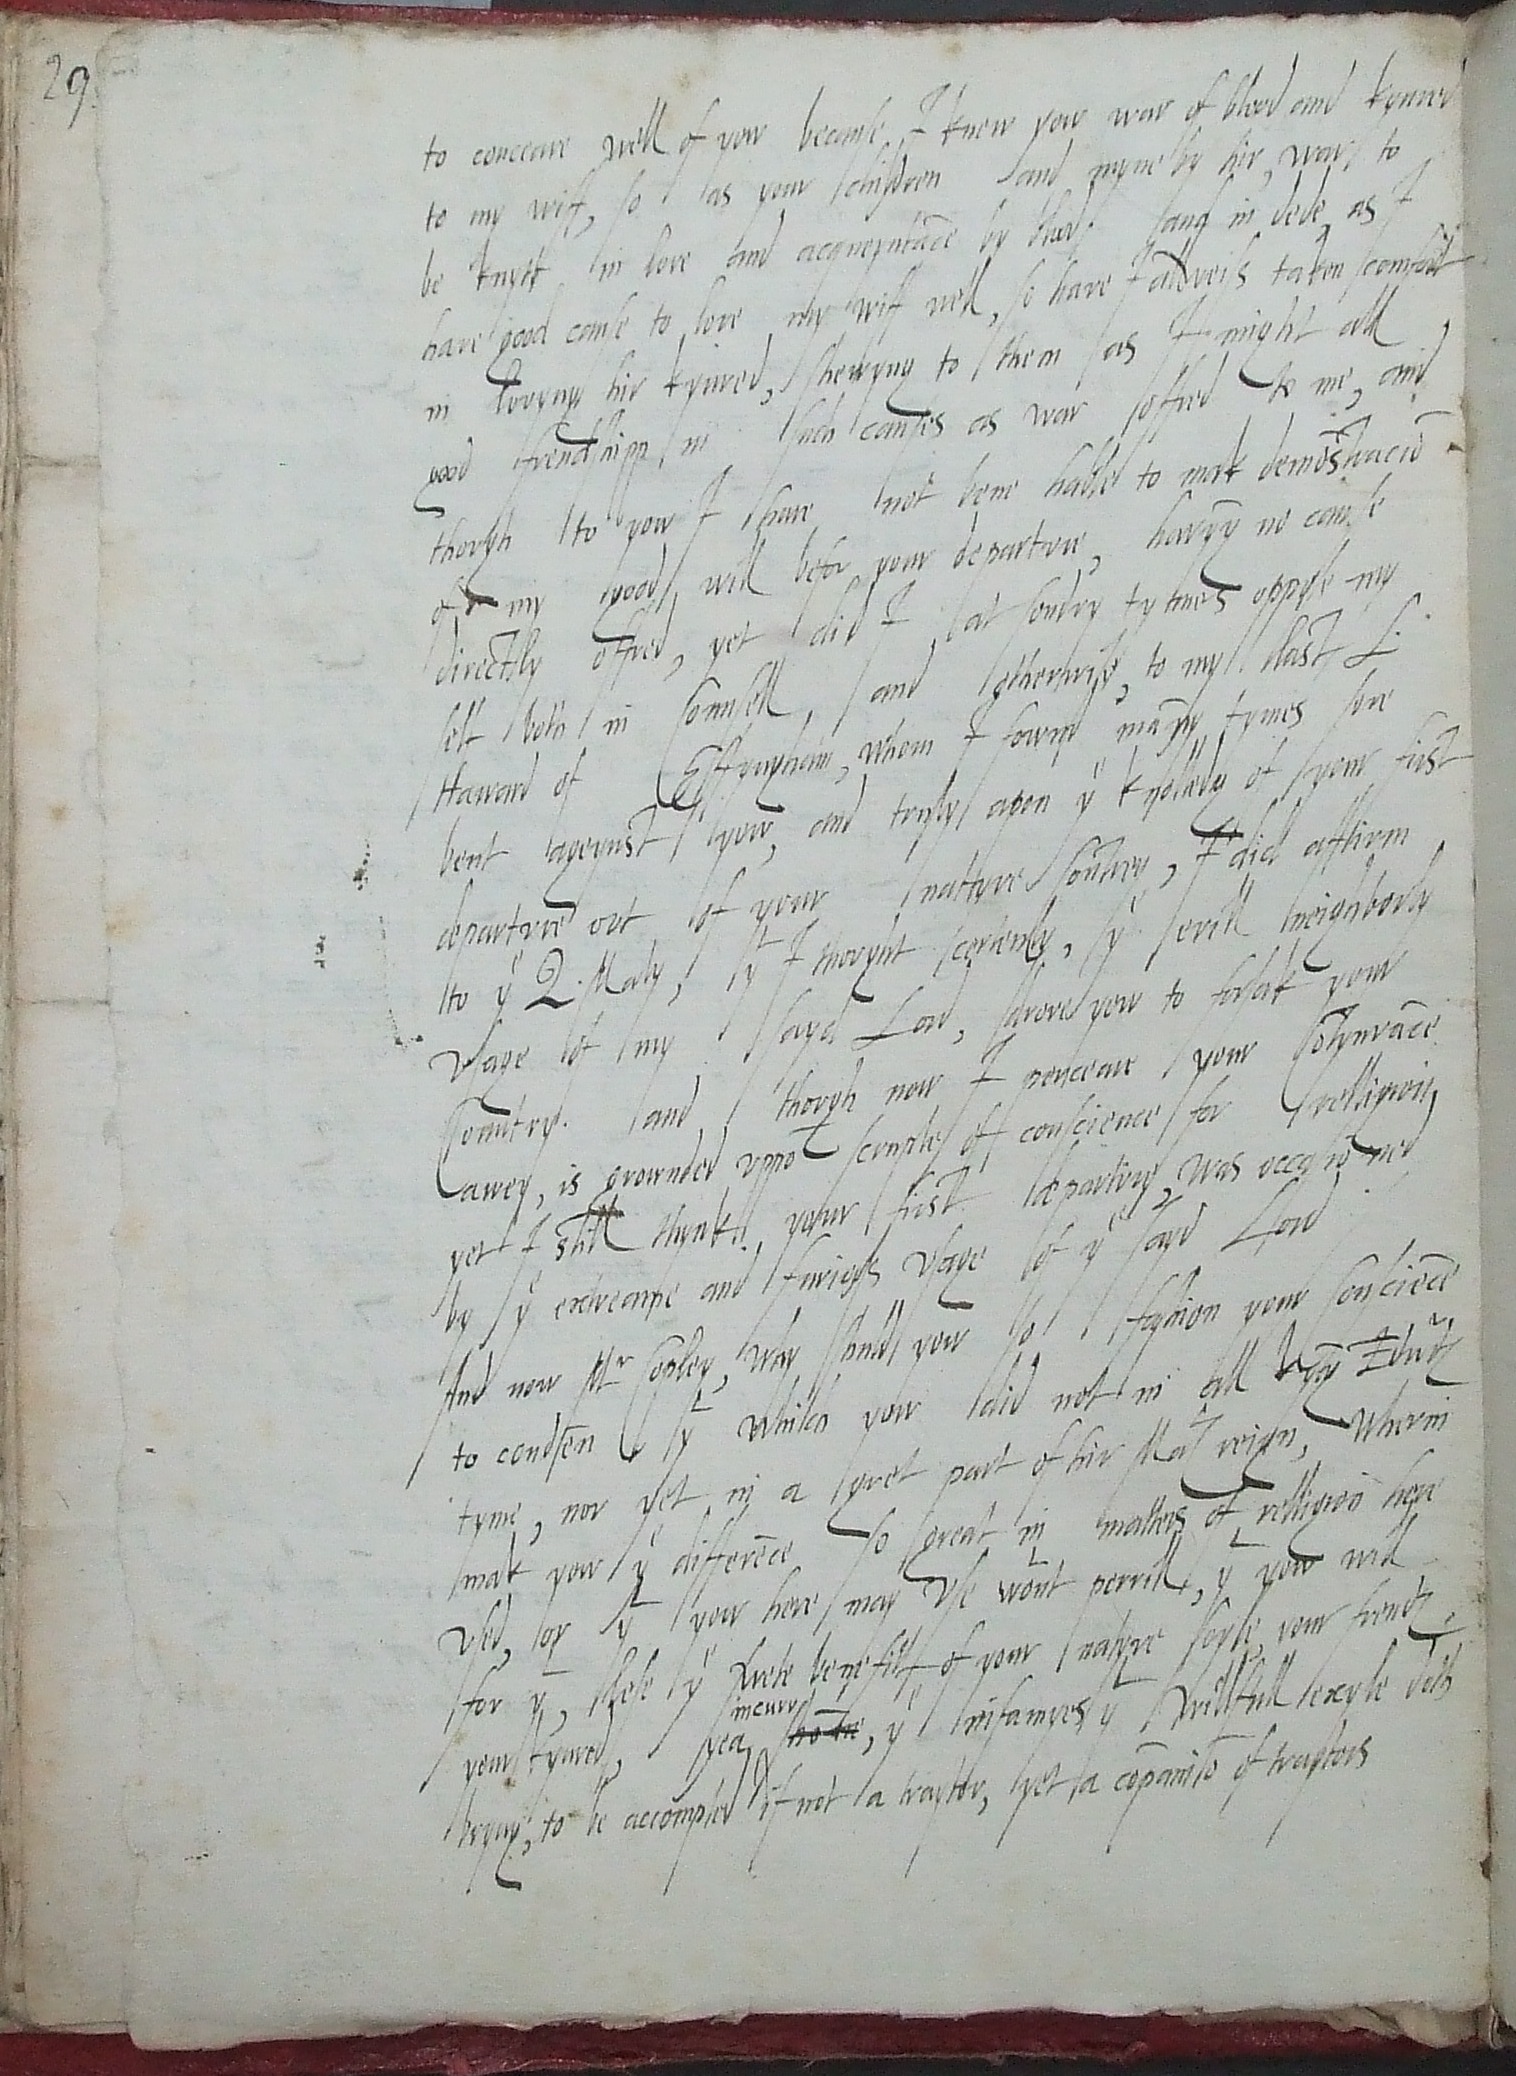 29
to conceave well of yow because I knew yow war of blood and kynred
to my wiff, so as your children and myne by hir, war to
be knytt in love and acqueyntāce by blood. and in dede as I
have good cause to love my wiff well, so have I allweis taken comfort
in lovyng hir kynred, shewyng to them as I might all
good frendshipp in such causes as war offred to me, and
though to yow I have not bene hable to mak demōstraciō
of my good will befor your departure, havyg no cause
directly offred, yet did I at sondry tymes oppose my
self both in Counsell, and otherwise, to my last L.
Haward of Effyngham, whom I fownd many tymes sore
bent ageynst yow, and truly apon yͤ knolledg of your first
departure out of your native Coūtrey, I did affirm
to yͤ Q. Maty, yͭ I thought certenly, yͭ evill neighborly
usage of my sayd Lord, drove yow to forsak your
Countrey. and though now I perceave your Cōtynvāce
awey, is grownded vppō scruple of conscience for relligion,
yet I still thynk, your first departure, was occasioned
by yͤ extreame and furious vsage of yͤ sayd Lord
And now Mr Copley, why shuld yow so fashion your Consciēce
to condēn yͭ which yow did not in all Kyng Edw
tyme, nor yet in a gret part of hir Maty reign, Wherin
mak yow yͤ differēce so great in matters of relligiō here
vsed, or yͭ yow here may vse wout perrill, yͭ yow will
for yͭ, lese yͤ swete benefitt of your native soyle, your frends,
your kynred, yea incurr yͤ infamyes yͭ willfull exyle doth
bryng, to be accompted if not a traytor, yet a cōpaniō of traytors